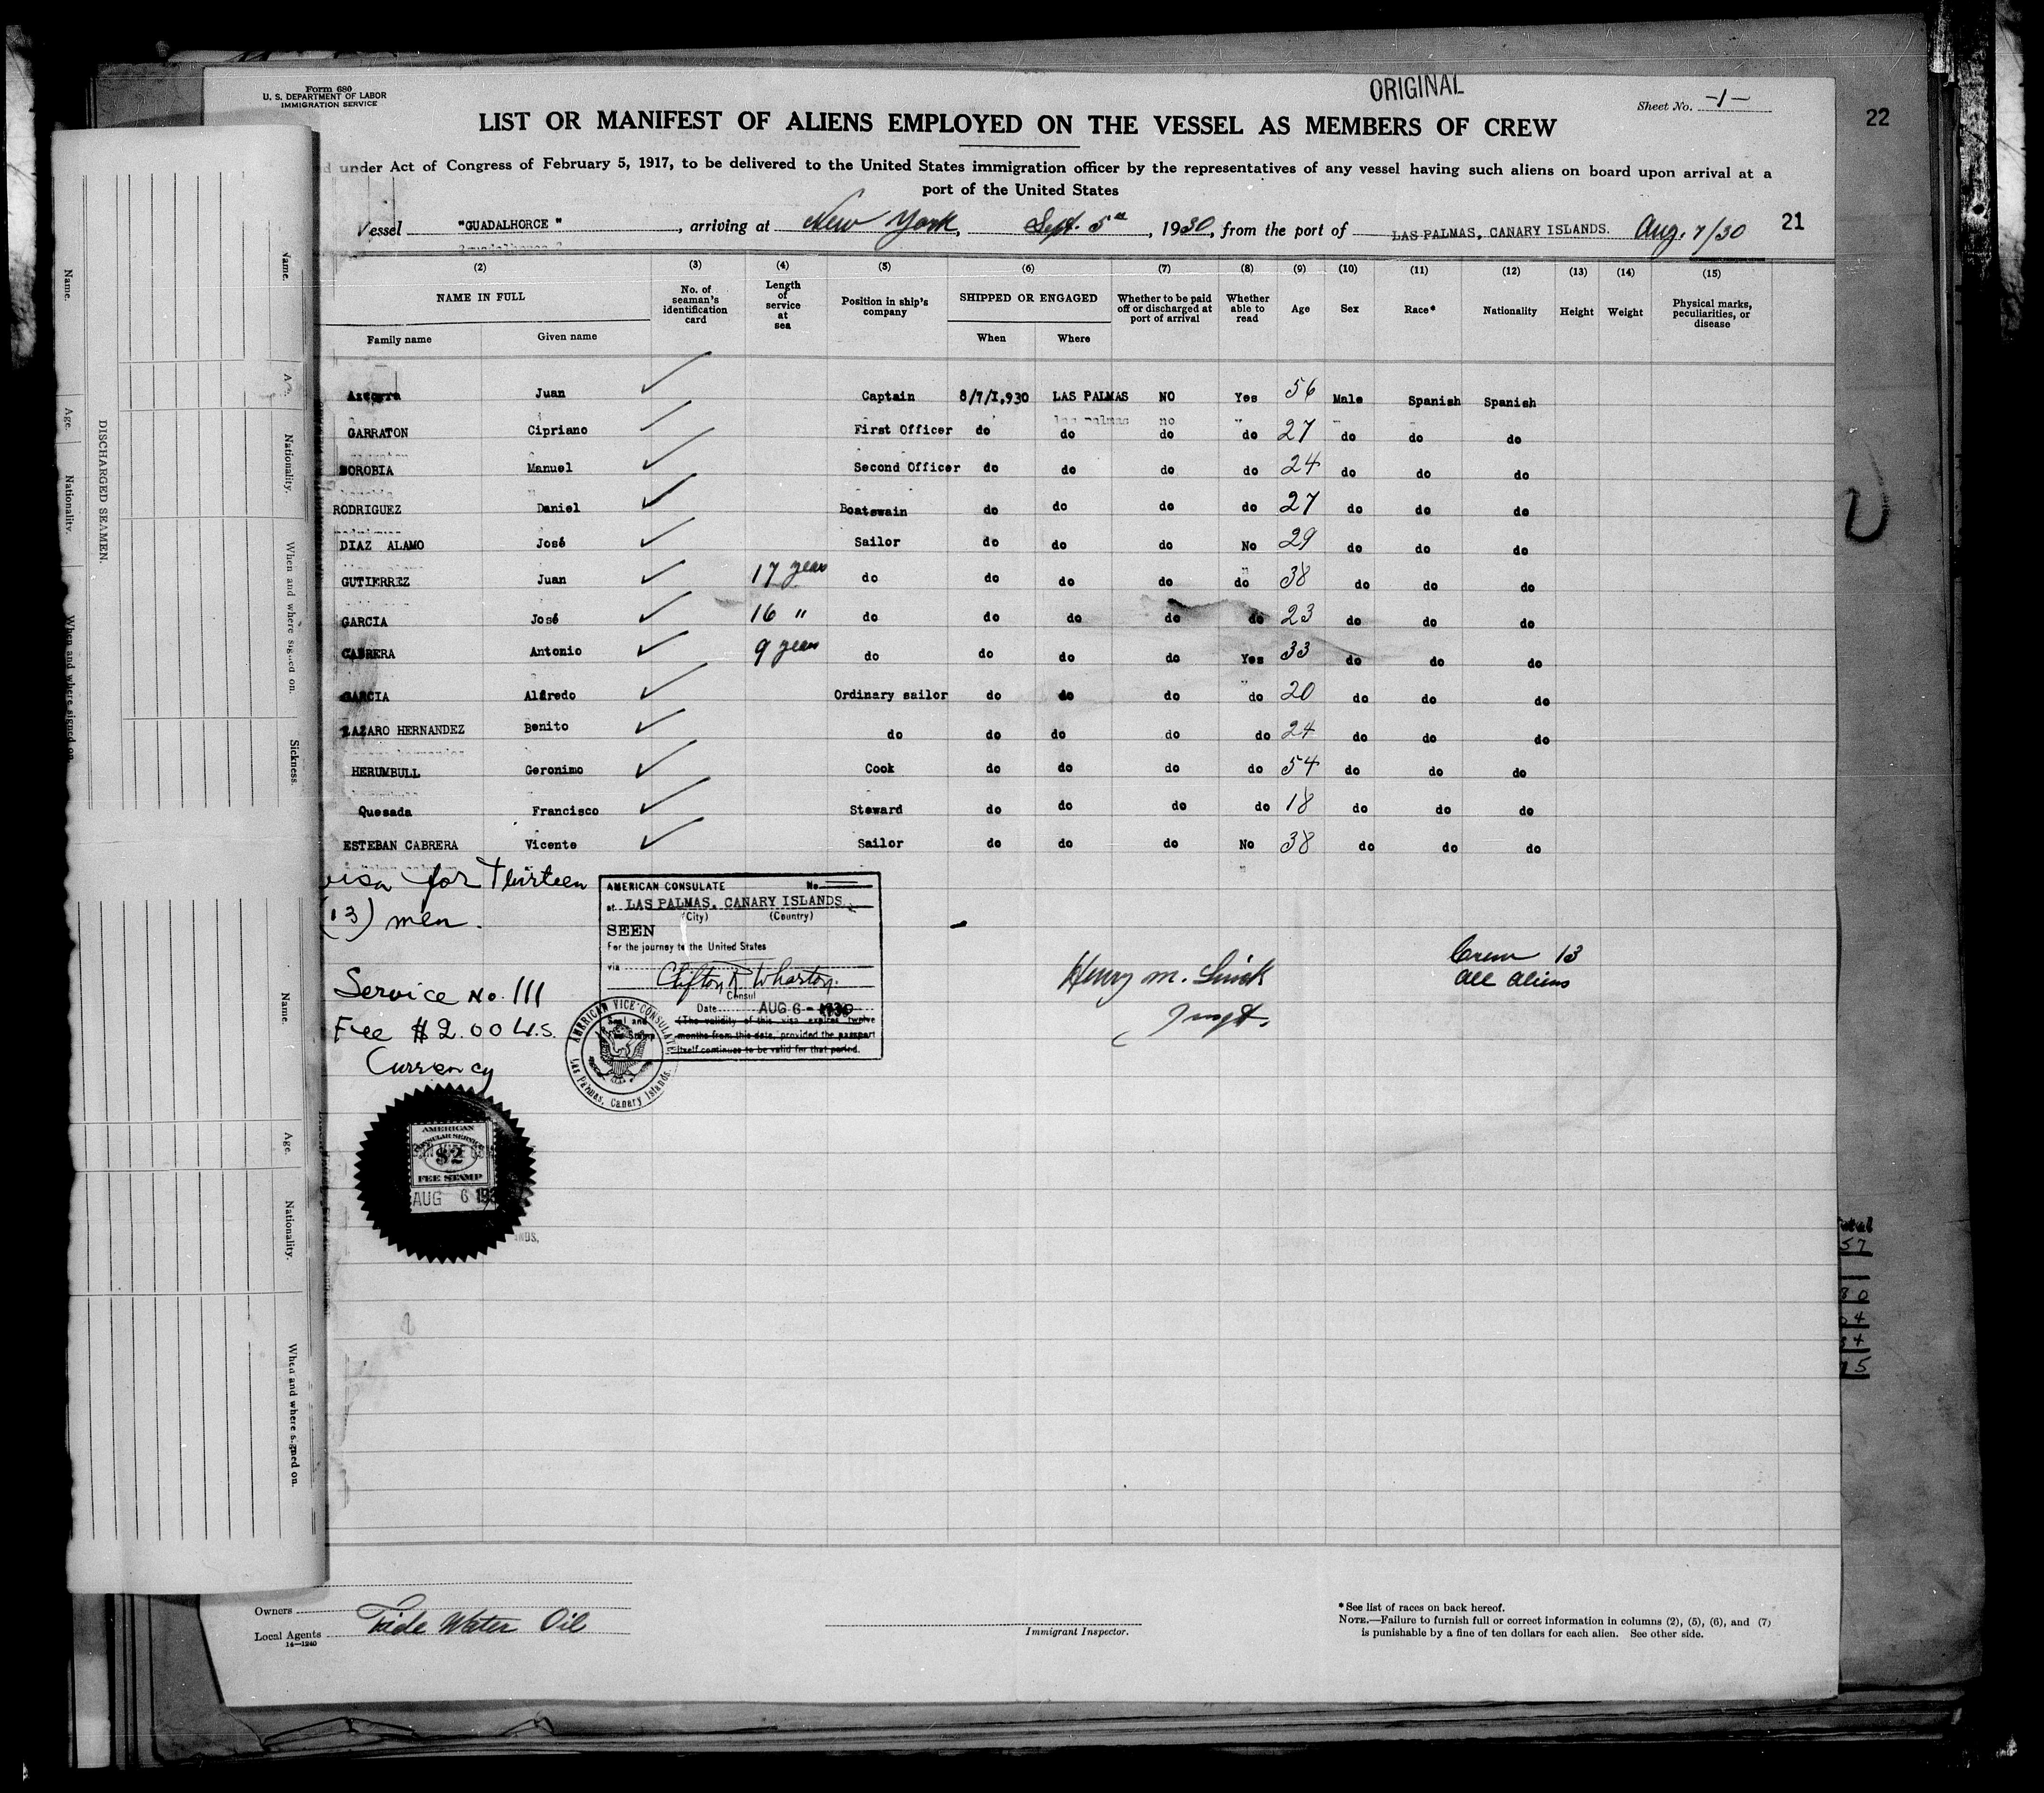 Form 680
U. S. DEPARTMENT OF LABOR
IMMIGRATION SERVICE
ORIGINAL
Sheet No. -1-
22
LIST OR MANIFEST OF ALIENS EMPLOYED ON THE VESSEL AS MEMBERS OF CREW
under Act of Congress of February 5, 1917, to be delivered to the United States immigration officer by the representatives of any vessel having such aliens on board upon arrival at a
port of the United States
Vessel "GUADALHORCE", arriving at New York, Sept. 5th, 1930, from the port of LAS PALMAS, CANARY ISLANDS. Aug. 7/30 21
(2) (3) (4) (5) (6) (7) (8) (9) (10) (11) (12) (13) (14) (15)
NAME IN FULL No. of seaman's identification card Length of service at sea Position in ship's company SHIPPED OR ENGAGED Whether to be paid off or discharged at port of arrival Whether able to read Age Sex Race* Nationality Height Weight Physical marks, peculiarities, or disease
Family name Given name When Where
Juan Captain 8/7/1,930 LAS PALMAS NO Yes 56 Male Spanish Spanish
GARRATON Cipriano First Officer do do do do 27 do do do
BOROBIA Manuel Second Officer do do do do 24 do do do
RODRIGUEZ Daniel Boatswain do do do do 27 do do do
DIAZ ALAMO José Sailor do do do No 29 do do do
GUTIERREZ Juan 17 years do do do do do 38 do do do
GARCIA José 16 " do do do do do 23 do do do
CABRERA Antonio 9 years do do do do Yes 33 do do do
GARCIA Alfredo Ordinary sailor do do do do 20 do do do
LAZARO HERNANDEZ Benito do do do do do 24 do do do
HERUMBULL Geronimo Cook do do do do 54 do do do
Quesada Francisco Steward do do do do 18 do do do
ESTEBAN CABRERA Vicente Sailor do do do No 38 do do do
visa for Thirteen
(13) men.
Service No. 111
Fee $2.00 U.S.
Currency
AMERICAN CONSULATE No.
at LAS PALMAS, CANARY ISLANDS.
(City) (Country)
SEEN
For the journey to the United States
via
Clifton R Wharton.
Consul
Date AUG 6 - 1930
Seal and Stamp
(The validity of this visa expires twelve
months from this date, provided the passport
itself continues to be valid for that period.
AMERICAN VICE CONSULATE
Las Palmas, Canary Islands.
Henry M.
Crew 13
All aliens
AMERICAN
CONSULAR SERVICE
$2
FEE STAMP
AUG 6 193
Owners
Local Agents Tide Water Oil
14—1240
Immigrant Inspector.
*See list of races on back hereof.
NOTE.—Failure to furnish full or correct information in columns (2), (5), (6), and (7)
is punishable by a fine of ten dollars for each alien. See other side.
DISCHARGED SEAMEN.
Name.
Age.
Nationality.
When and where signed on.
Name.
Nationality.
When and where signed on.
Sickness.
Name.
Age.
Nationality.
When and where signed on.
57
80